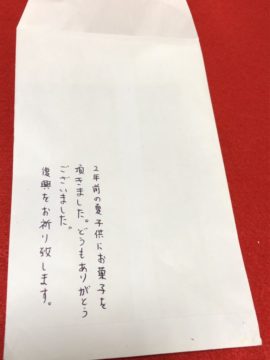 2年前の夏子供にお菓子を
頂きました。どうもありがとう
ございました。
復興をお祈り致します。